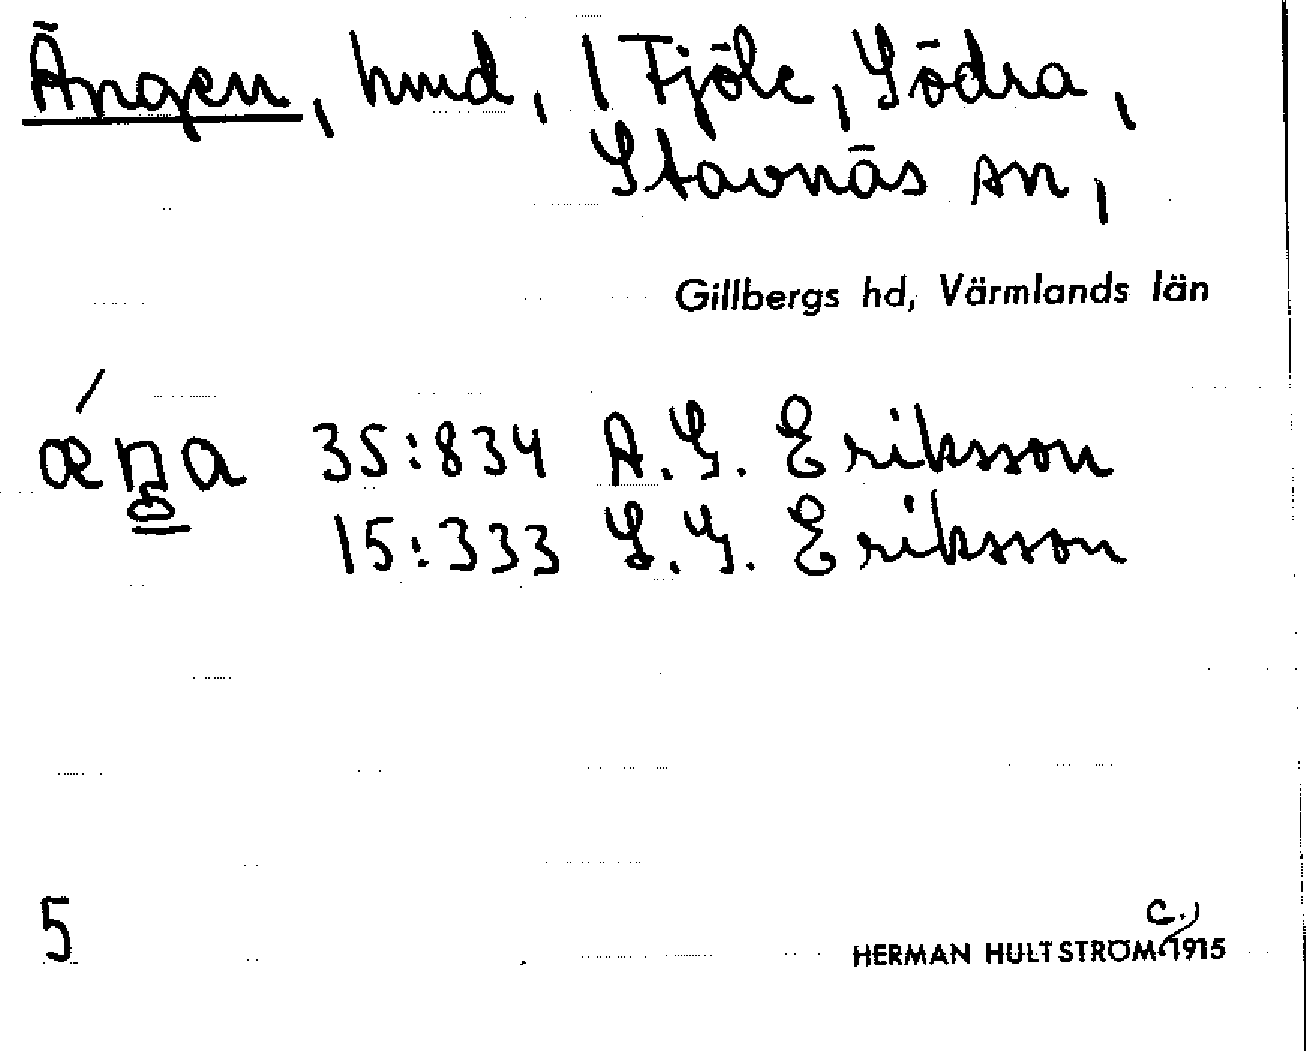 Ängen, hmd, 1 Fjöle, Södra,
Stavnäs sn,
Gillbergs hd, Värmlands län
ǽŋ̥a 35:834 A.G. Eriksson
15:333 L.G. Eriksson
5
HERMAN HULTSTRÖM c. 1915